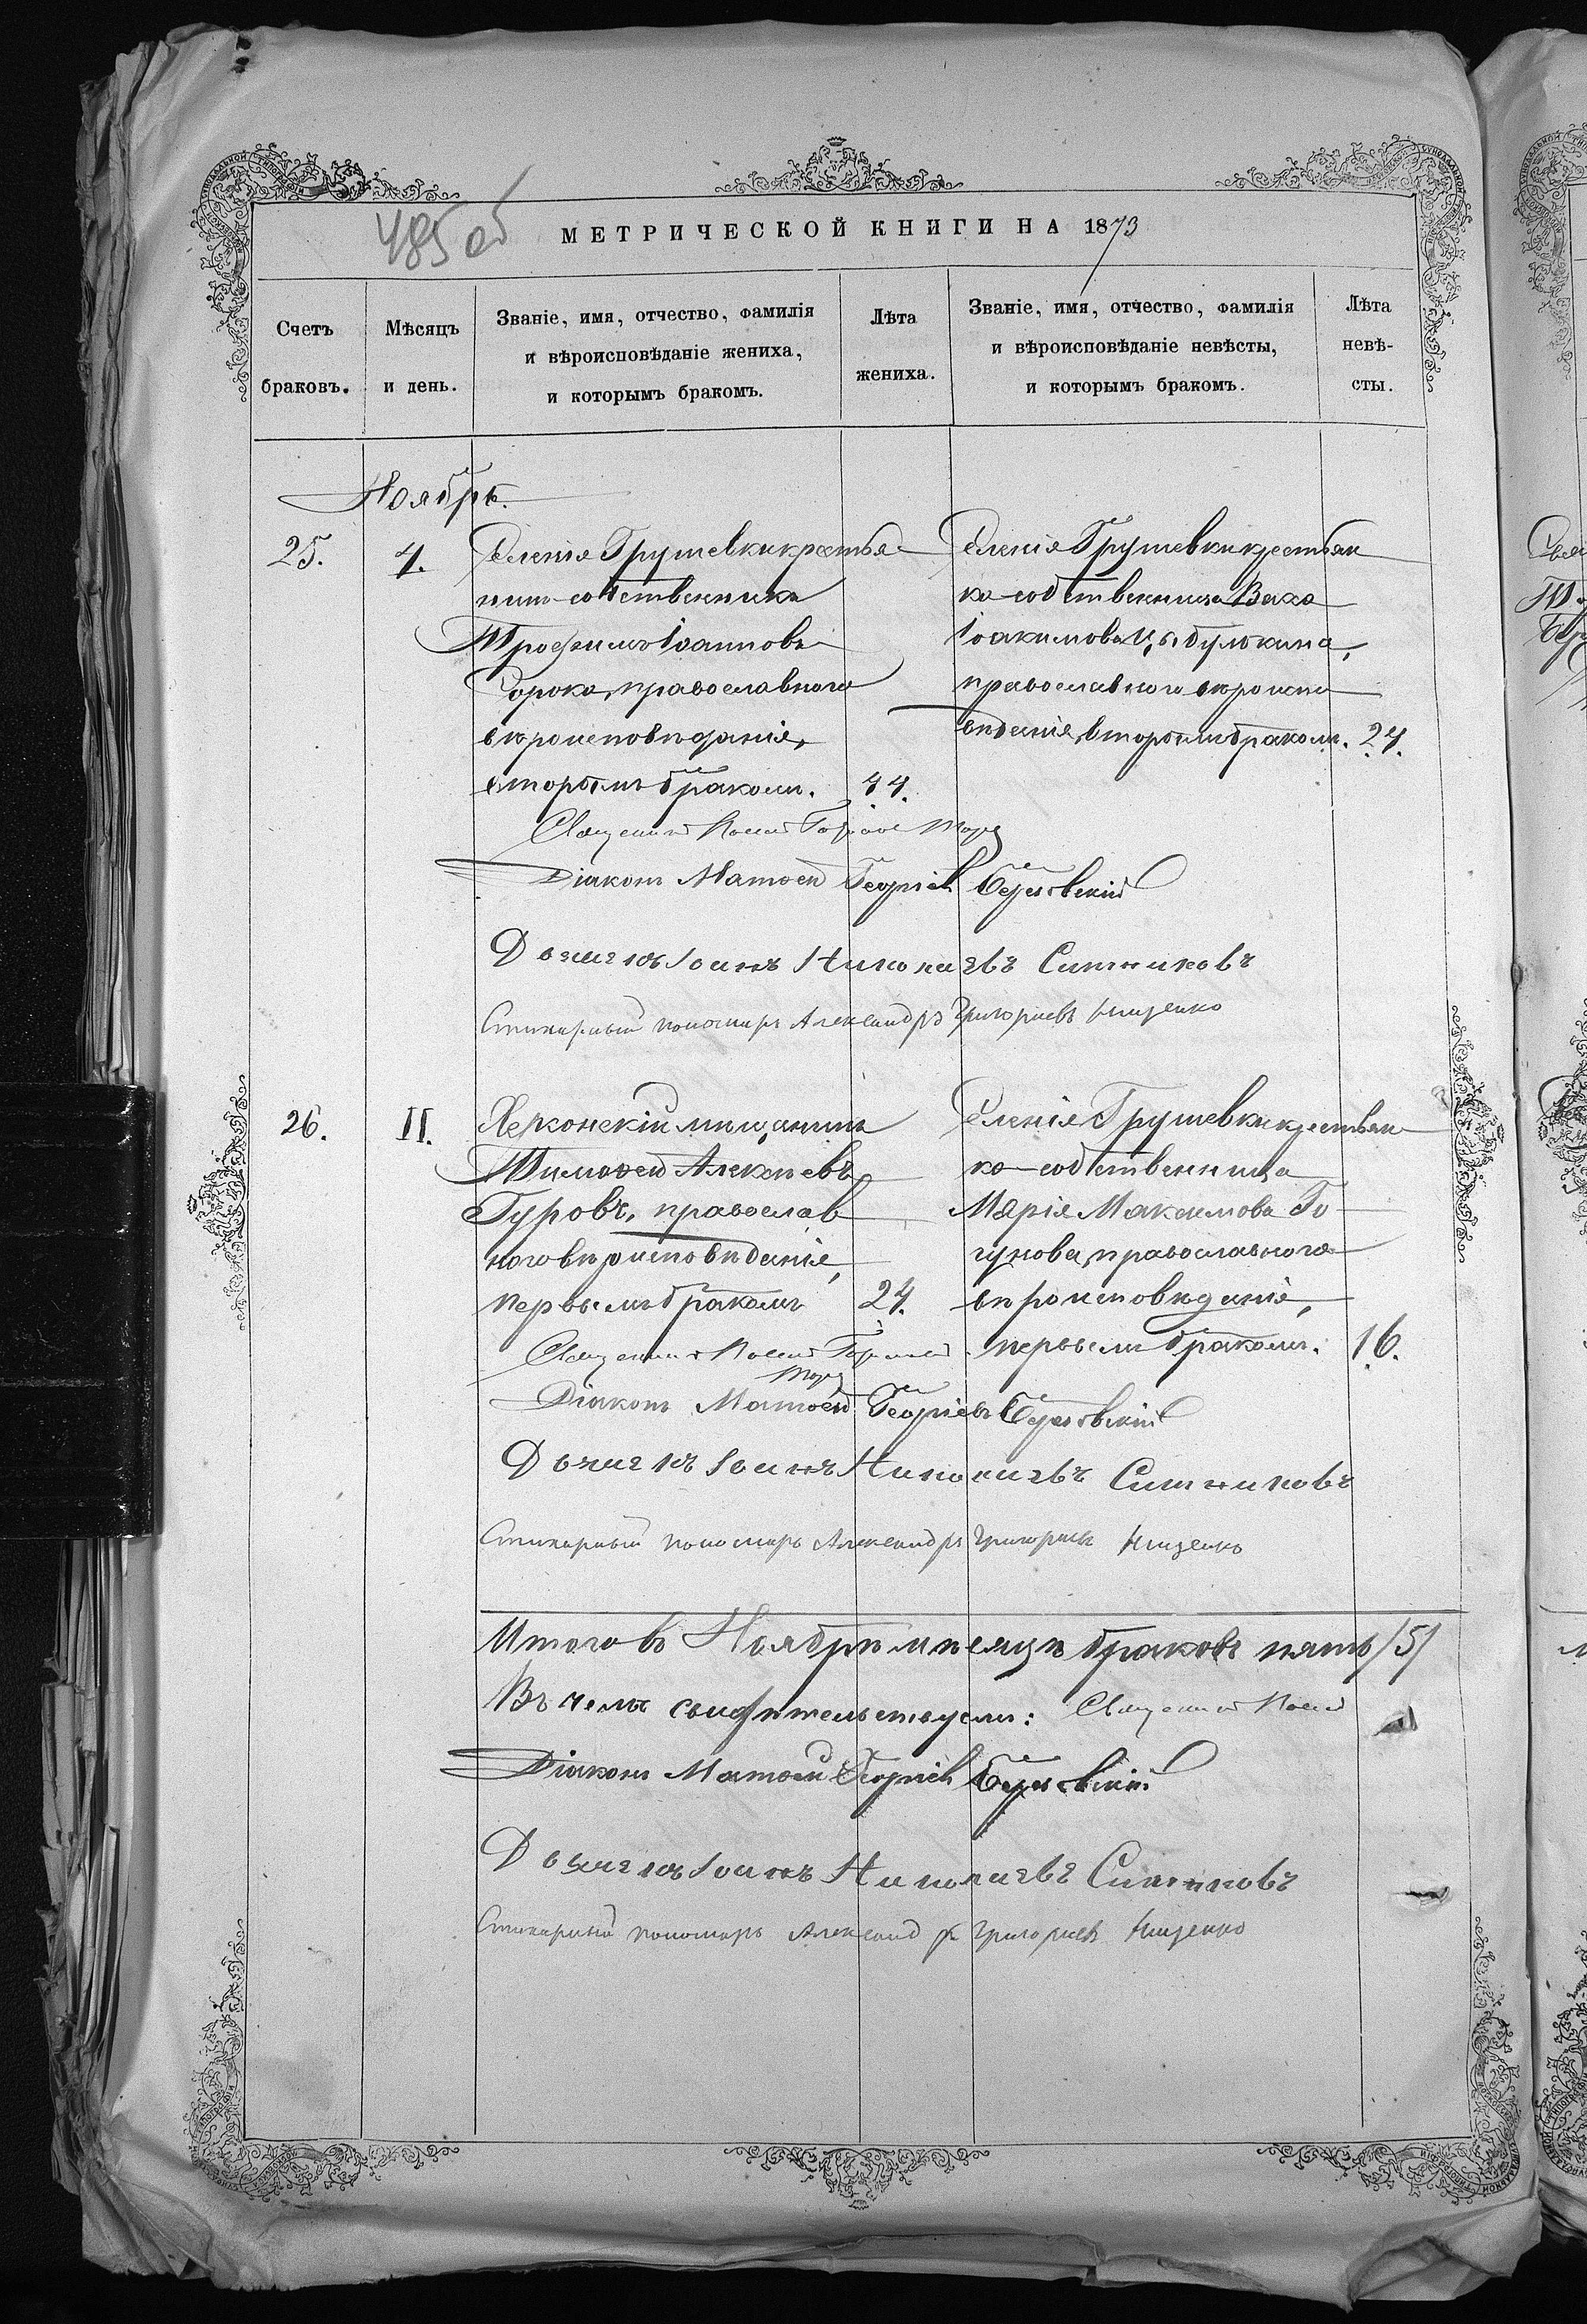 485 об
МЕТРИЧЕСКОЙ КНИГИ НА 1873
Счетъ браковъ.
Мѣсяцъ и день.
Званіе, имя, отчество, фамилія
и вѣроисповѣданіе жениха,
и которымъ бракомъ.
Лѣта жениха.
Званіе, имя, отчество, фамилія
и вѣроисповѣданіе невѣсты,
и которымъ бракомъ.
Лѣта невѣ-
сты.
Ноябрь.
25.
4.
Селенія Грушевки крестья-
нинъ-собственникъ
Трофимъ Іоанновъ
Сорока, православнаго
вѣроисповѣданія,
вторымъ бракомъ.
44.
Селенія Грушевки крестьян
ка-собственница Васса
Іоакимова Цыбулькина,
православнаго вѣроиспо
вѣданія, вторымъ бракомъ.
24.
Священникъ
Діаконъ Матѳей Георгіевъ Береговскій
Дьячекъ Іоаннъ Николаевъ Ситниковъ
Стихарный пономарь Александръ Григорьевъ Нищенко
26.
11.
Херсонскій мѣщанинъ
Тимоѳей Алексѣевъ
Гуровъ, православ
наго вѣроисповѣданія,
первымъ бракомъ
24.
Селенія Грушевки крестьян
ка-собственница
Марія Максимова Го
гунова, православнаго
вѣроисповѣданія,
первымъ бракомъ.
16.
Священникъ
Діаконъ Матѳей Георгіевъ Береговскій
Дьячекъ Іоаннъ Николаевъ Ситниковъ
Стихарный пономарь Александръ Григорьевъ Нищенко
Итого въ Ноябрѣ мѣсяцѣ браковъ пять /5/
Въ чемъ свидѣтельствуемъ: Священникъ
Діаконъ Матѳей Георгіевъ Береговскій
Дьячекъ Іоаннъ Николаевъ Ситниковъ
Стихарный пономарь Александръ Григорьевъ Нищенко